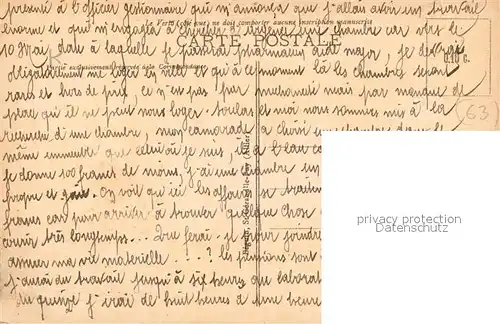 présent à l'officier gestionnaire qui m'annonce que j'allais avoir un travail
Le Verso (côté vue) ne doit comporter aucune inscription manuscrite
énorme et qui m'engagea à chercher d'urgent une chambre car vers le
CARTE POSTALE
10 Mai, date à laquelle le général pharmacien était major, je devrais
0.10 C.
obligatoirement me loger en ville et qu'à ce moment là les chambres seront
Partie exclusivement réservée à la Correspondance
rares et hors de prix, ce n'est pas par méchanceté mais par manque de
place qu'il ne peut nous loger. et moi nous sommes mis à la
(63)
recherche d'une chambre, mon camarade a choisi une chambre dans le
même immeuble que celui où je suis, il a l'eau
je donne 100 francs de moins, j'ai une chambre un
propre et gaie. On voit qu'ici les affaires se traitent
francs can pour arriver à trouver quelque chose
ouvrir très longtemps... Que ferai-je pour joindre
assurer ma vie matérielle...? les pensions sont
j'aurai du travail jusqu'à six heures au laboratoire
du quinze j'irai de huit heures à une heure
(Allier)
privacy protection
Datenschutz